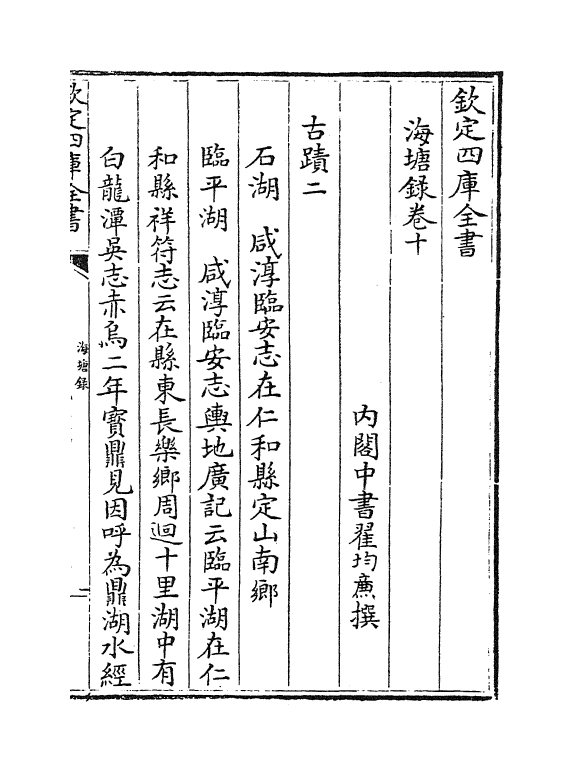 欽定四庫全書
海塘録卷十
内閣中書翟均廉撰
古蹟二
石湖 咸淳臨安志在仁和縣定山南鄉
臨平湖 咸淳臨安志輿地廣記云臨平湖在仁
和縣祥符志云在縣東長樂鄉周迴十里湖中有
白龍潭吳志赤烏二年寳鼎見因呼為鼎湖水經
欽定四庫全書
海塘録